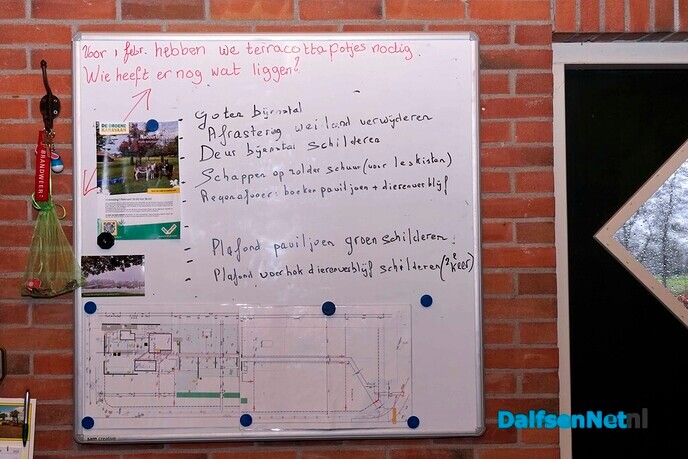 Voor 1 febr. hebben we terracottapotjes nodig.
Wie heeft er nog wat liggen?
DE GROENE
KARAVAAN
BRANDWEER
- Goten bijenstal
- Afrastering weiland verwijderen
- Deur bijenstal schilderen
- Schappen op zolder schuur (voor leskisten)
- Regenafvoer: hoeken paviljoen + dierenverblijf
- Plafond paviljoen groen schilderen!
- Plafond voorhok dierenverblijf schilderen (2e keer)
sam creative
DalfsenNet.nl